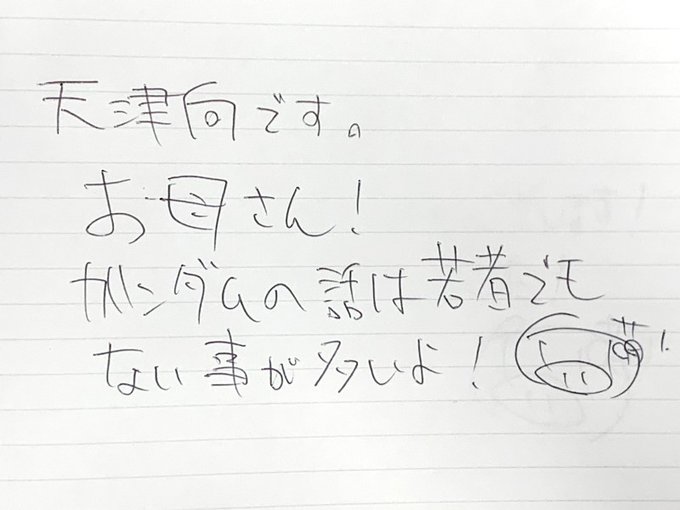 天津向です。
お母さん!
ガンダムの話は若者でも
ない事が多いよ!